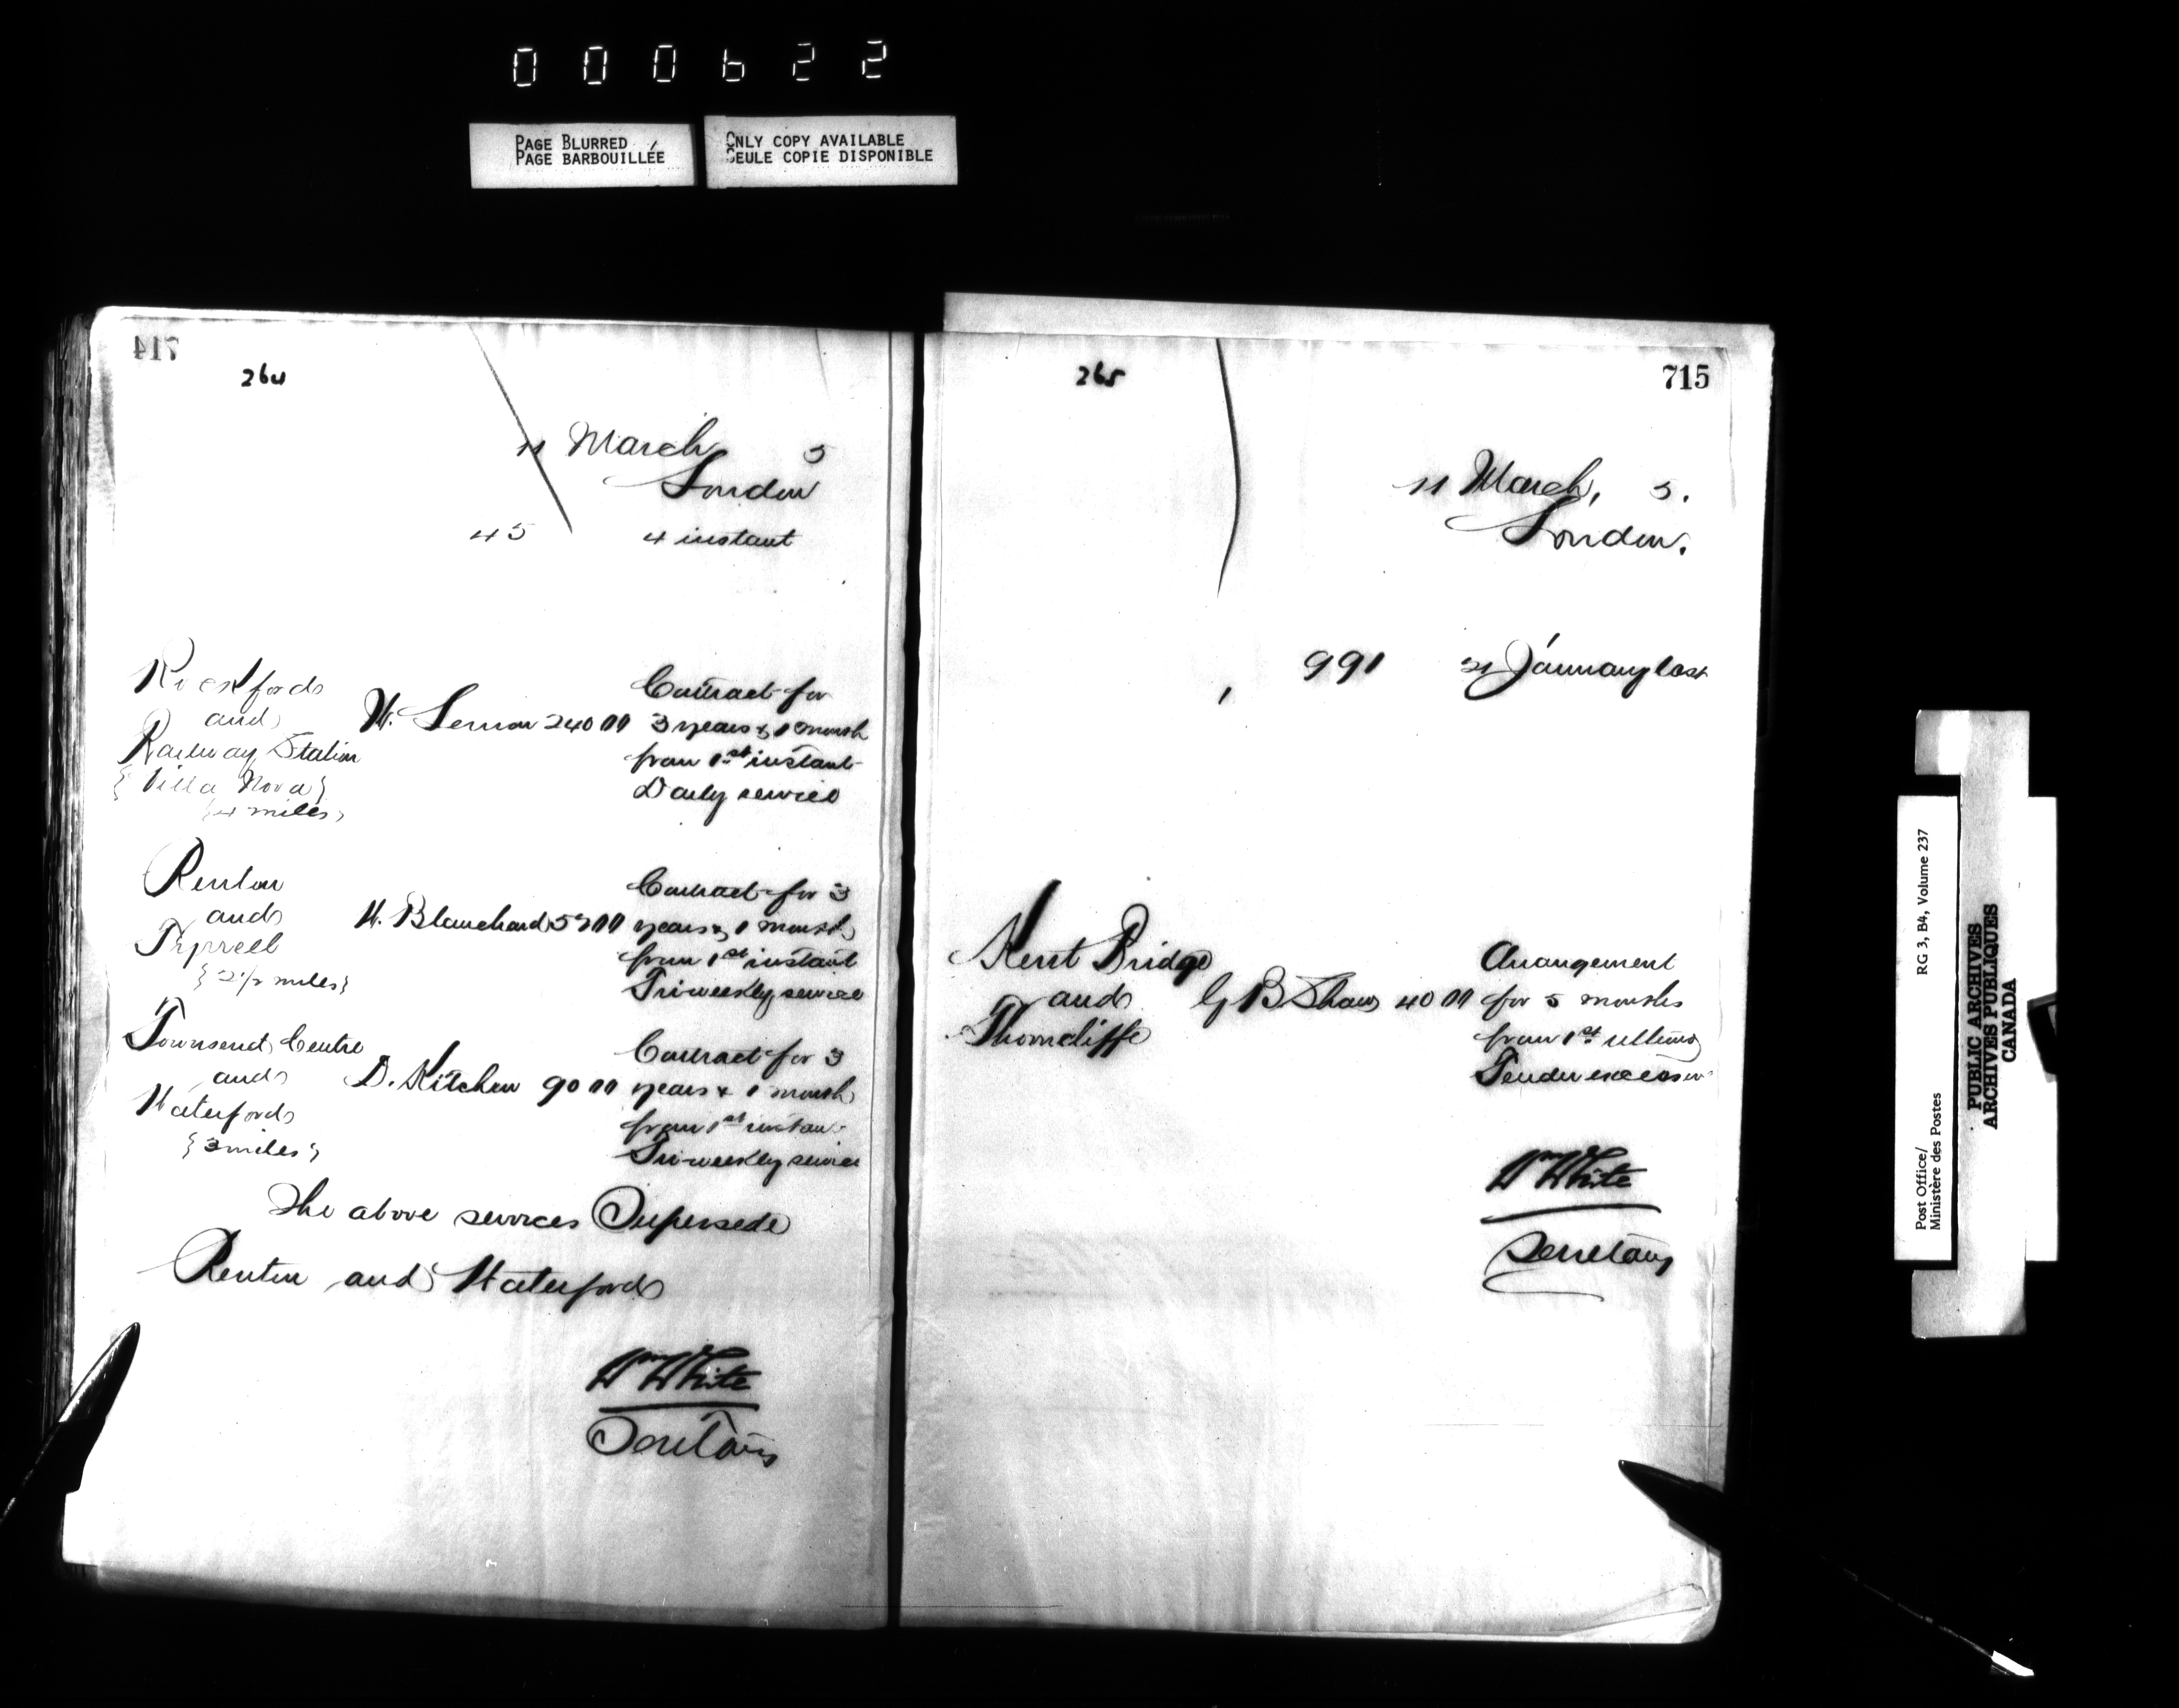 000622
PAGE BLURRED
PAGE BARBOUILLÉE
ONLY COPY AVAILABLE
SEULE COPIE DISPONIBLE
714
264
11 March 5
London
45 4 instant
Rockford
and
Railway Station
{Villa Nova}
{4 miles}
W. Lemon 240 00
Contract for
3 years & 1 month
from 1st instant
Daily service
Renton
and
Tyrrell
{2 1/2 miles}
W. Blanchard 00
Contract for 3
years & 1 month
from 1st instant
Tri-weekly service
Townsend Centre
and
Waterford
{3 miles}
D. Kitchen 90 00
Contract for 3
years & 1 month
from 1st instant
Tri-weekly service
The above services Supersede
Renton and Waterford
Wm White
Secretary
265
715
11 March, 5.
London.
991 January last
Kent Bridge
and
Thorncliffe
G B Shaw 40 00
Arrangement
for 5 months
from 1st ultimo
Tender excessive
Wm White
Secretary
Post Office/
Ministère des Postes
RG 3, B4, Volume 237
PUBLIC ARCHIVES
ARCHIVES PUBLIQUES
CANADA